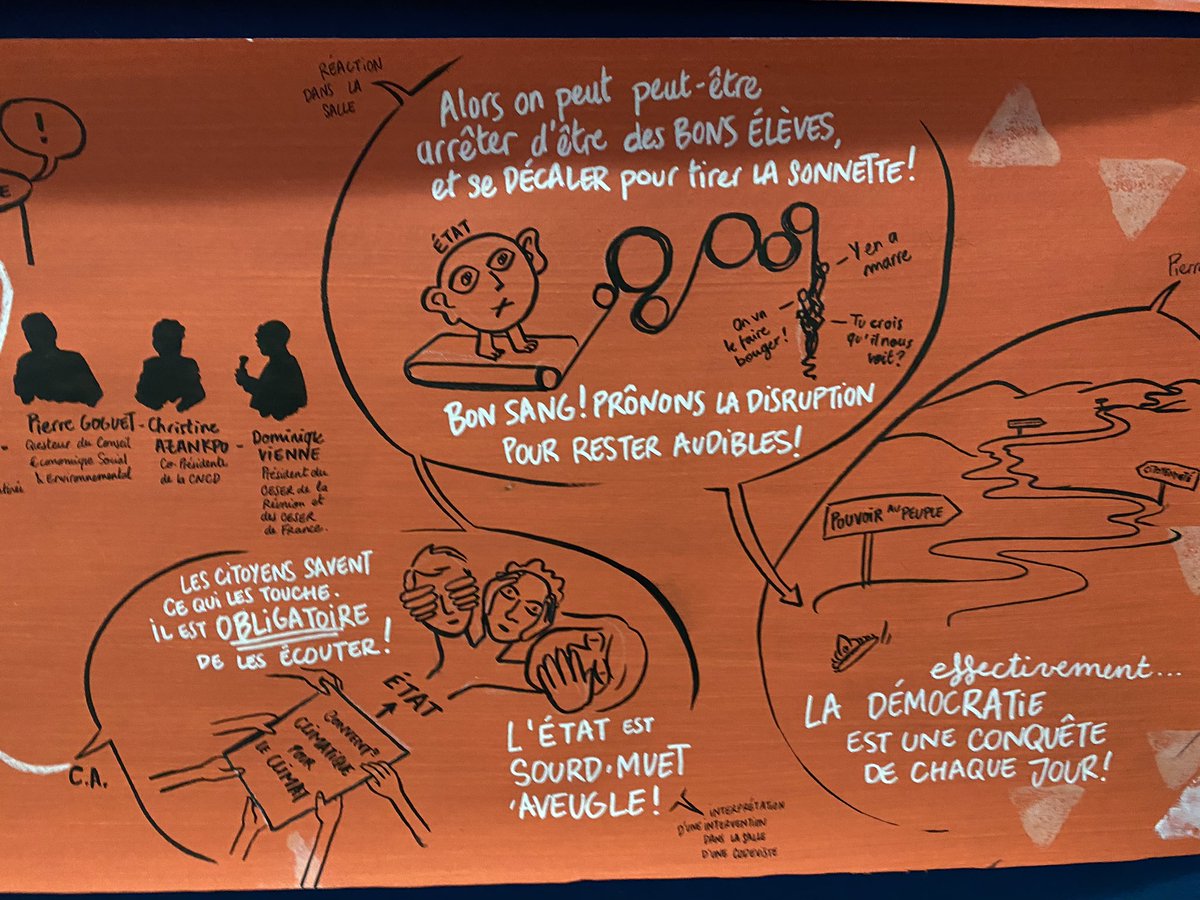 !
RÉACTION
DANS LA
SALLE
Alors on peut peut-être
arrêter d'être des BONS ÉLÈVES,
et se DÉCALER pour tirer LA SONNETTE!
ÉTAT
Y en a
marre
On va
le faire
bouger!
Tu crois
qu'il nous
voit?
BON SANG! PRÔNONS LA DISRUPTION
POUR RESTER AUDIBLES!
Pierre GOGUET -
Questeur du Conseil
Économique Social
& Environnemental
Christine
AZANKPO -
Co-Présidente
de la CNCD
Dominique
VIENNE
Président du
CESER de la
Réunion et
des CESER
de France.
LES CITOYENS SAVENT
CE QUI LES TOUCHE.
IL EST OBLIGATOIRE
DE LES ÉCOUTER!
C.A.
CONVENT°
CLIMATIQUE
POUR
LE CLIMAT
ÉTAT
L'ÉTAT EST
SOURD·MUET
·AVEUGLE!
INTERPRÉTATION
D'UNE INTERVENTION
DANS LA SALLE
D'UNE CODEVISTE
Pierre
CITOYENNETÉ
POUVOIR AU PEUPLE
effectivement...
LA DÉMOCRATIE
EST UNE CONQUÊTE
DE CHAQUE JOUR!